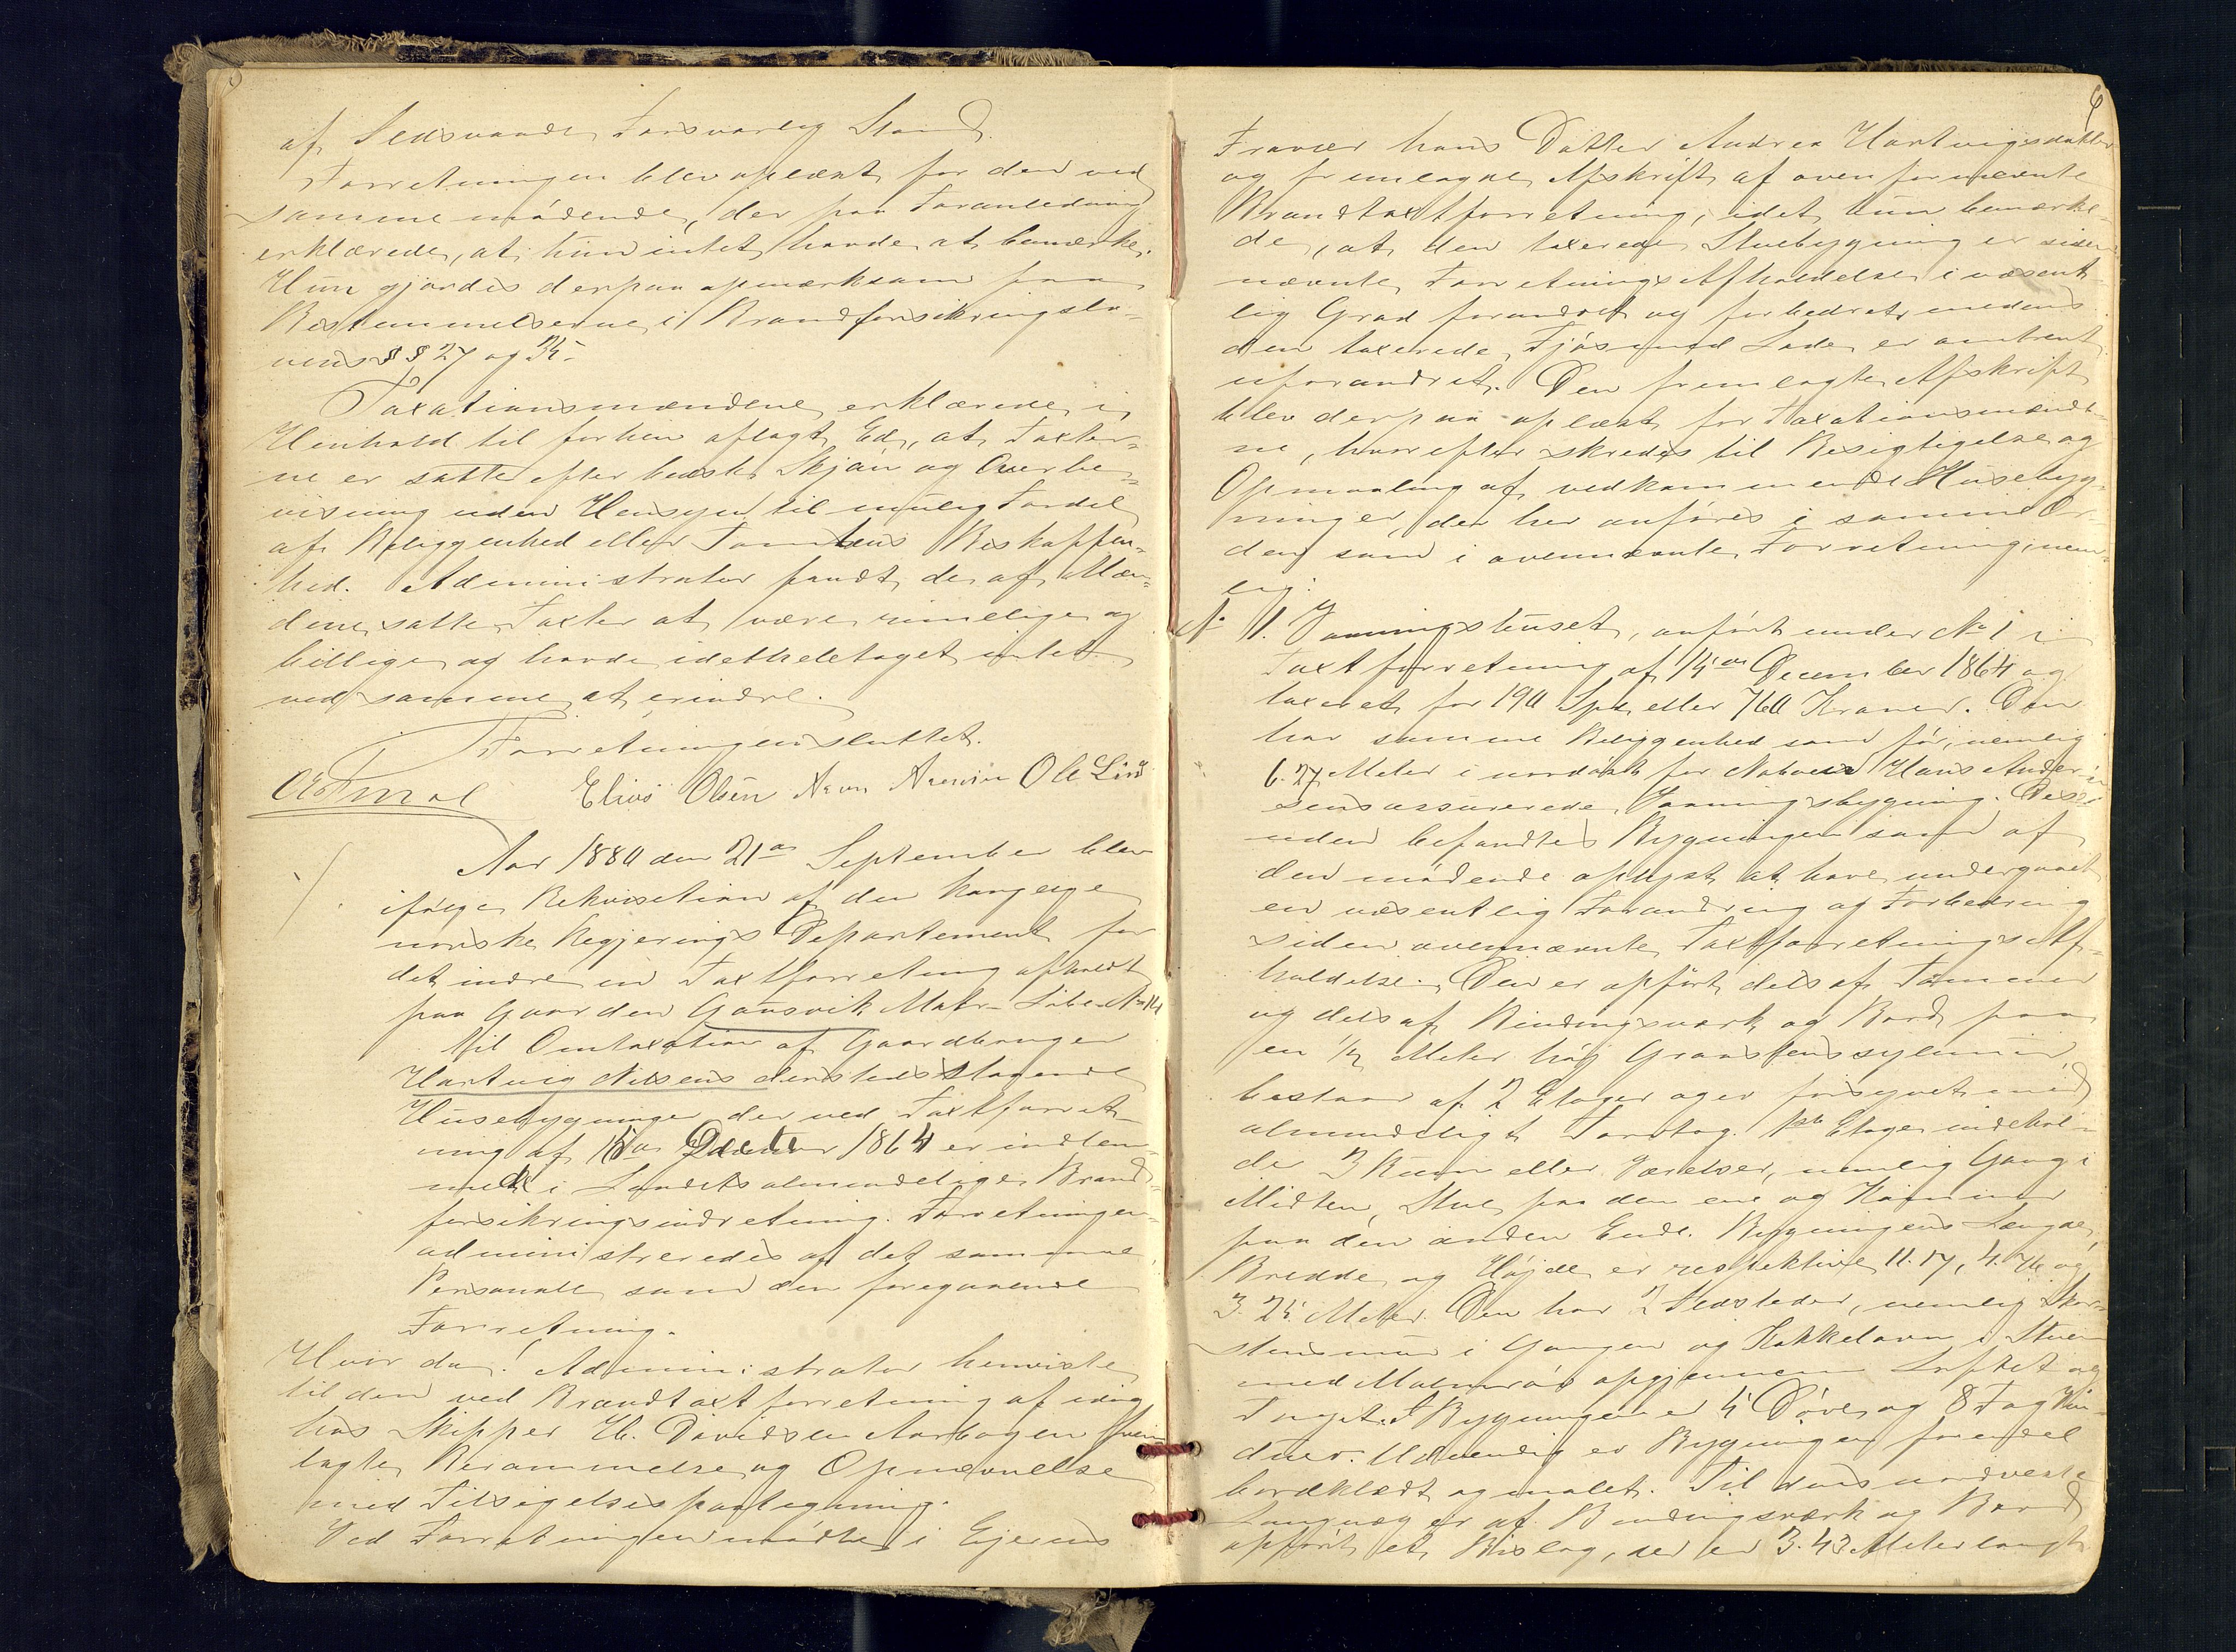 af Ildsvaade, forsvarlig Stand.
Forretningen blev oplæst for den ved
samme mødende, der paa Foranledning
erklærede, at hun intet havde at bemærke.
Hun gjordes derpaa opmærksom paa
Bestemmelserne i Brandforsikringslo-
vens §§ 27 og 35.
Taxationsmændene erklærede i
Henhold til forhen aflagt Ed, at Taxter-
ne er satte efter bedste Skjøn og Overbe-
visning uden Hensyn til mulig Fordel
af Beliggenhed eller Tomtens Beskaffen-
hed. Administrator fandt de af Mæn-
dene satte Taxter at være rimelige og
billige og havde idetheletaget intet
ved samme at erindre.
Forretningen sluttet.
Elias Olsen Ole Lind
Aar 1880 den 21de September blev
ifølge Rekvisition af den kongelige
norske Regjerings Departement for
det indre en Taxtforretning afholdt
paa Gaarden Gausvik Matr. Løbe No 14
til Omtaxation af Gaardbruger
Hartvig Nilsens dersteds staaende
Husebygninger der ved Taxtforret-
ning af 15de December 1864 er indlem-
mede i Landets almindelige Brand-
forsikringsindretning. Forretningen
administreredes af det samme
Personale som den foregaaende
Forretning.
Hvor da! Administrator henviste
til den ved Brandtaxtforretning af idag
hos Skipper H. Davidsen Aarbogen frem-
lagte Berammelse og Opnævnelse
med Tilsigelsespaategning.
Ved Forretningen mødte i Ejerens
6
Fravær hans Datter Andrea Hartvigsdatter
og fremlagde Afskrift af ovenfornævnte
Brandtaxtforretning, idet hun bemærke-
de, at den taxerede Stuebygning er siden
nævnte Forretnings Afholdelse i væsent-
lig Grad forandret og forbedret, medens
den taxerede Fjøs med Lade er omtrent
uforandret. Den fremlagte Afskrift
blev derpaa oplæst for Taxationsmænde-
ne, hvorefter skredes til Besigtigelse og
Opmaaling af vedkommende Husebyg-
ninger, der her anføres i samme Or-
den som i ovennævnte Forretning, nem-
lig:
No 1. Vaaningshuset, anført under No 1 i
Taxtforretning af 15de December 1864 og
taxeret for 190 Spd. eller 760 Kroner. Den
har samme Beliggenhed som før, nemlig
6.27 Meter i nordost for Naboen Hans Ander-
sens assurerede Vaaningsbygning. Des-
uden befandtes Bygningen som af
den mødende oplyst at have undergaaet
en væsentlig Forandring og Forbedring
siden ovennævnte Taxtforretnings Af-
holdelse. Den er opført dels af Tømmer
og dels af Bindingsværk og Bord paa
en ½ Meter høj Graastenssylemur
bestaar af 2 Etager og er forsynet med
almindeligt Torvtag. 1ste Etage indehol-
der 3 Rum eller Værelser, nemlig Gang i
Midten, Stue paa den ene og Kammer
paa den anden Ende. Bygningens Længde,
Bredde og Højde er respektive 11.17, 4.76 og
3.25 Meter. Den har 2 Ildsteder, nemlig Skor-
stensmur i Gangen og Kakkelovn i Stuen
med Malmrør opgjennem Loftet og
Taget. I Bygningen er 4 Døre og 8 Fag Vin-
duer. Udvendig er Bygningen forendel
bordklædt og malet. Til dens nordvestre
Langvæg er af Bindingsværk og Bord
opført et Bislag, der er 3.43 Meter langt